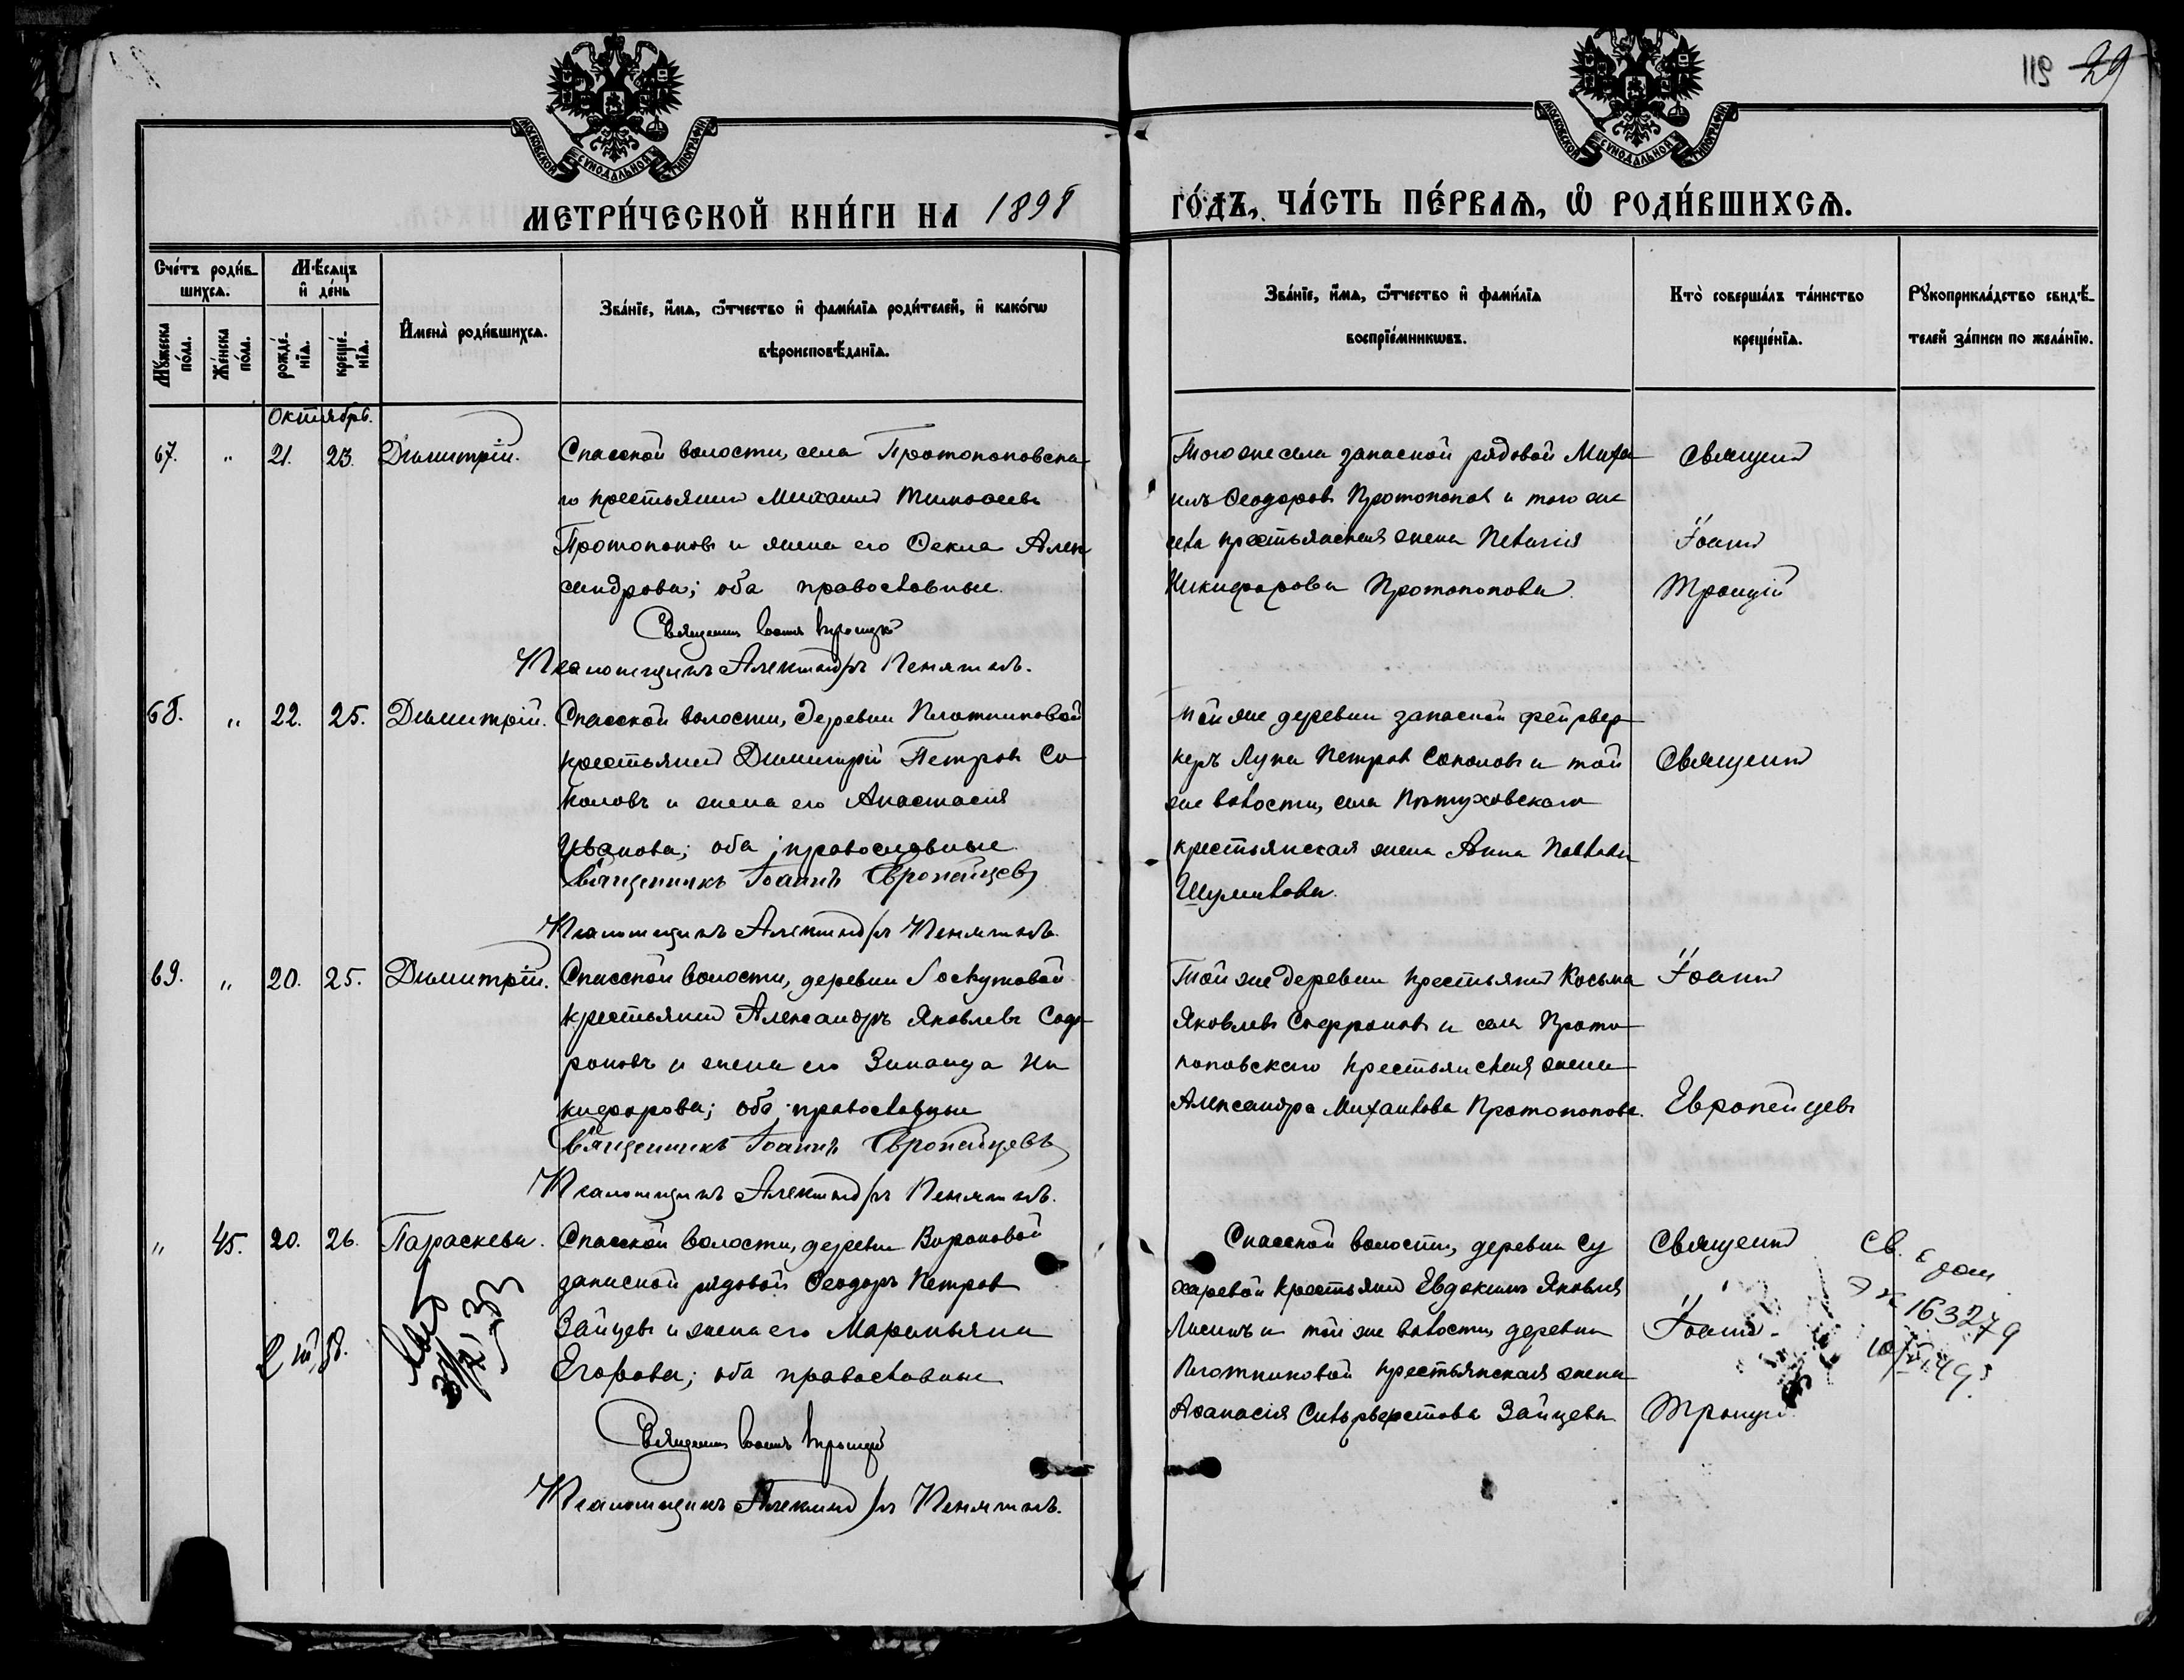 29
МОСКОВСКОЙ СѴНОДАЛЬНОЙ ТИПОГРАФІИ
МОСКОВСКОЙ СѴНОДАЛЬНОЙ ТИПОГРАФІИ
МЕТРИ́ЧЕСКОЙ КНИ́ГИ НА 1898
ГО́ДЪ, ЧА́СТЬ ПЕ́РВАѦ, Ѽ РОДИ́ВШИХСѦ.
Сче́тъ роди́в-
шихсѧ.
Мѣ́сѧцъ
и҆ де́нь
Мꙋ́жеска по́ла.
Же́нска по́ла.
рожде́-
нїѧ.
креще́-
нїѧ.
И҆мена̀ роди́вшихсѧ.
Зва́нїе, и҆́мѧ, ѻ҆́тчество и҆ фами́лїѧ роди́телей, и҆ како́гѡ
вѣроисповѣ́данїѧ.
Зва́нїе, и҆́мѧ, ѻ҆́тчество и҆ фами́лїѧ
воспрїе́мникѡвъ.
Кто̀ соверша́лъ та́инство
креще́нїѧ.
Рꙋкоприкла́дство свидѣ́-
телей за́писи по жела́нїю.
Октябрь.
67. " 21. 23. Димитрій.
Спасской волости, села Протопоповска
го крестьянинъ Михаилъ Тимофеевъ
Протопоповъ и жена его Ѳекла Алек
сандрова; оба православные.
Священникъ Іоаннъ Троицкій
Псаломщикъ Александръ
Того же села запасной рядовой Миха
илъ Ѳеодоровъ Протопоповъ и того же
села крестьянская жена Пелагія
Никифорова Протопопова.
Священникъ
Іоаннъ
Троицкій
68. " 22. 25. Димитрій.
Спасской волости, деревни Плотниковой
крестьянинъ Димитрій Петровъ Со
коловъ и жена его Анастасія
Иванова; оба православные
Священникъ Іоаннъ Европейцевъ
Псаломщикъ Александръ
Той же деревни запасной фейрвер
керъ Лупа Петровъ Соколовъ и той
же волости, села Пѣтуховскаго
крестьянская жена Анна Павлова
Шумилова.
Священникъ
69. " 20. 25. Димитрій.
Спасской волости, деревни Лоскутовой
крестьянинъ Александръ Яковлевъ Соф
роновъ и жена его Зинаида Ни
кифорова; оба православные
Священникъ Іоаннъ Европейцевъ
Псаломщикъ Александръ
Той же деревни крестьянинъ Косьма
Яковлевъ Софроновъ и села Прото
поповскаго крестьянская жена
Александра Михаилова Протопопова.
Іоаннъ
Европейцевъ
" 45. 20. 26. Параскева.
Спасской волости, деревни Вороновой
запасной рядовой Ѳеодоръ Петровъ
Зайцевъ и жена его Маримьяна
Егорова; оба православные
Священникъ Іоаннъ Троицкій
Псаломщикъ Александръ
Спасской волости, деревни Су
харевой крестьянинъ Евдокимъ Яковлевъ
Лисинъ и той же волости, деревни
Плотниковой крестьянская жена
Аѳанасія Сильверстова Зайцева
Священникъ
Іоаннъ
Троицкій
Св.
163279